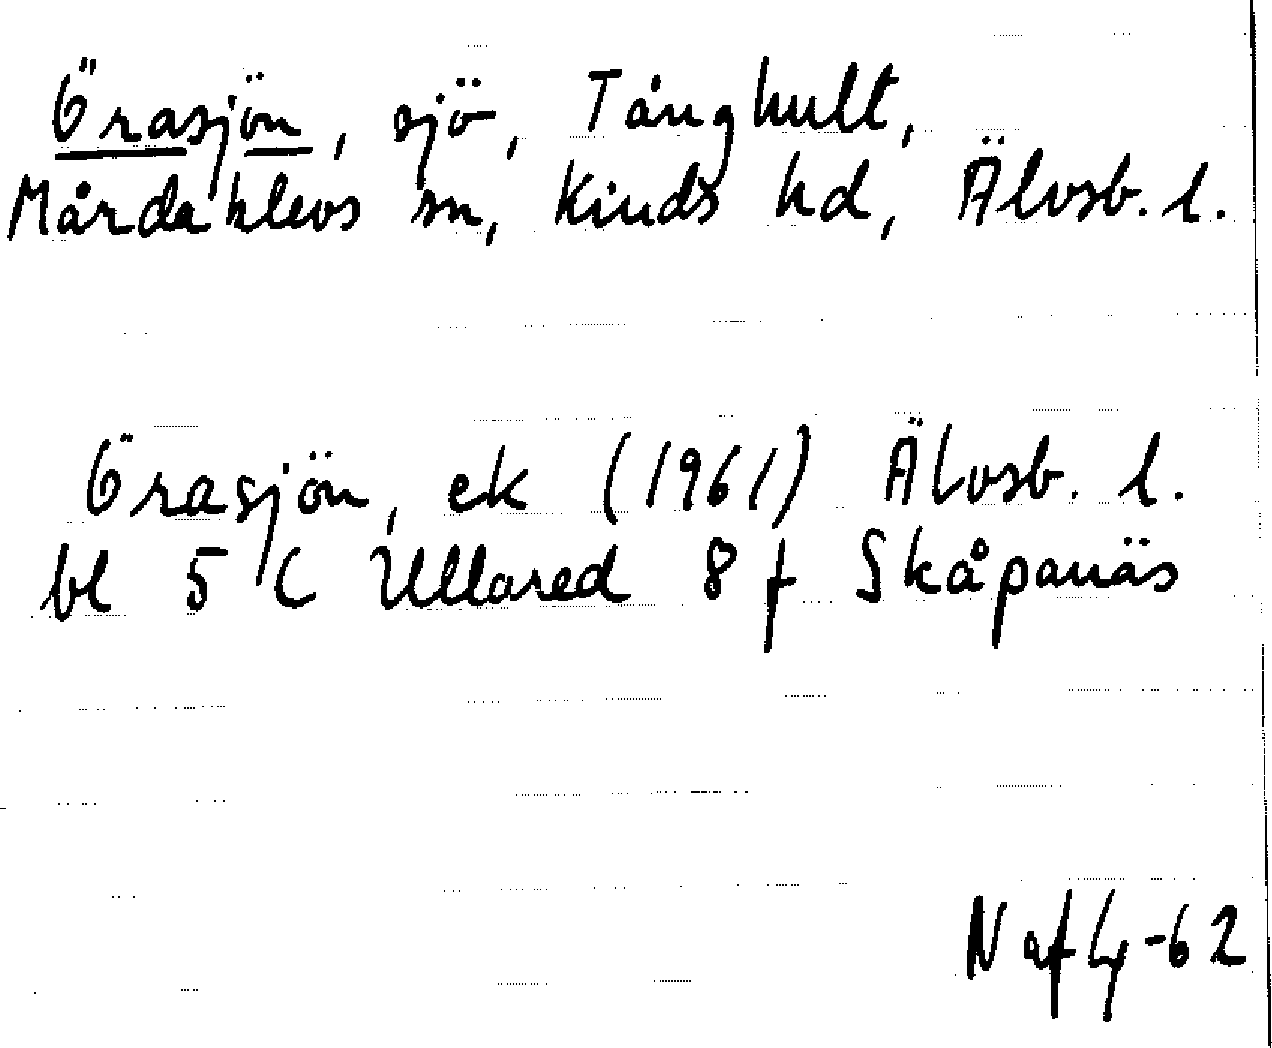 Örasjön, sjö, Tånghult,
Mårdaklevs sn, Kinds hd, Älvsb. l.
Örasjön, ek (1961) Älvsb. l.
bl 5 C Ullared 8 f Skåpanäs
N af Ly -62